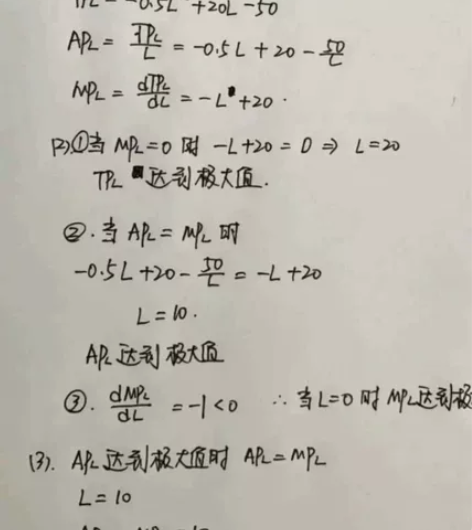 TPL = -0.5L² + 20L - 50
APL = TPL/L = -0.5L + 20 - 50/L
MPL = dTPL/dL = -L + 20.
(2)①当 MPL=0 时 -L+20=0 ⇒ L=20
TPL 达到极大值.
②.当 APL = MPL 时
-0.5L+20-50/L = -L+20
L=10.
APL 达到极大值
③. dMPL/dL = -1<0 ∴当L=0时MPL达到极
(3). APL 达到极大值时 APL=MPL
L=10